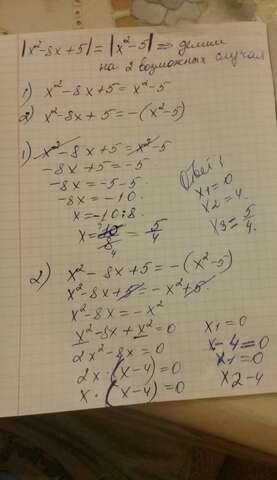 |x²-8x+5|=|x²-5| ⇒ делим
на 2 возможных случая
1) x²-8x+5=x²-5
2) x²-8x+5=-(x²-5)
1) x²-8x+5=x²-5
-8x+5=-5
-8x=-5-5
-8x=-10.
x=-10:8.
x=10/8 4 = 5/4
Ответ:
x1=0
x2=4
x3=5/4.
2) x²-8x+5=-(x²-5)
x²-8x+5=-x²+5
x²-8x=-x²
x²-8x+x²=0
2x²-8x=0
2x·(x-4)=0
x·(x-4)=0
x1=0
x-4=0
x1=0
x2-4